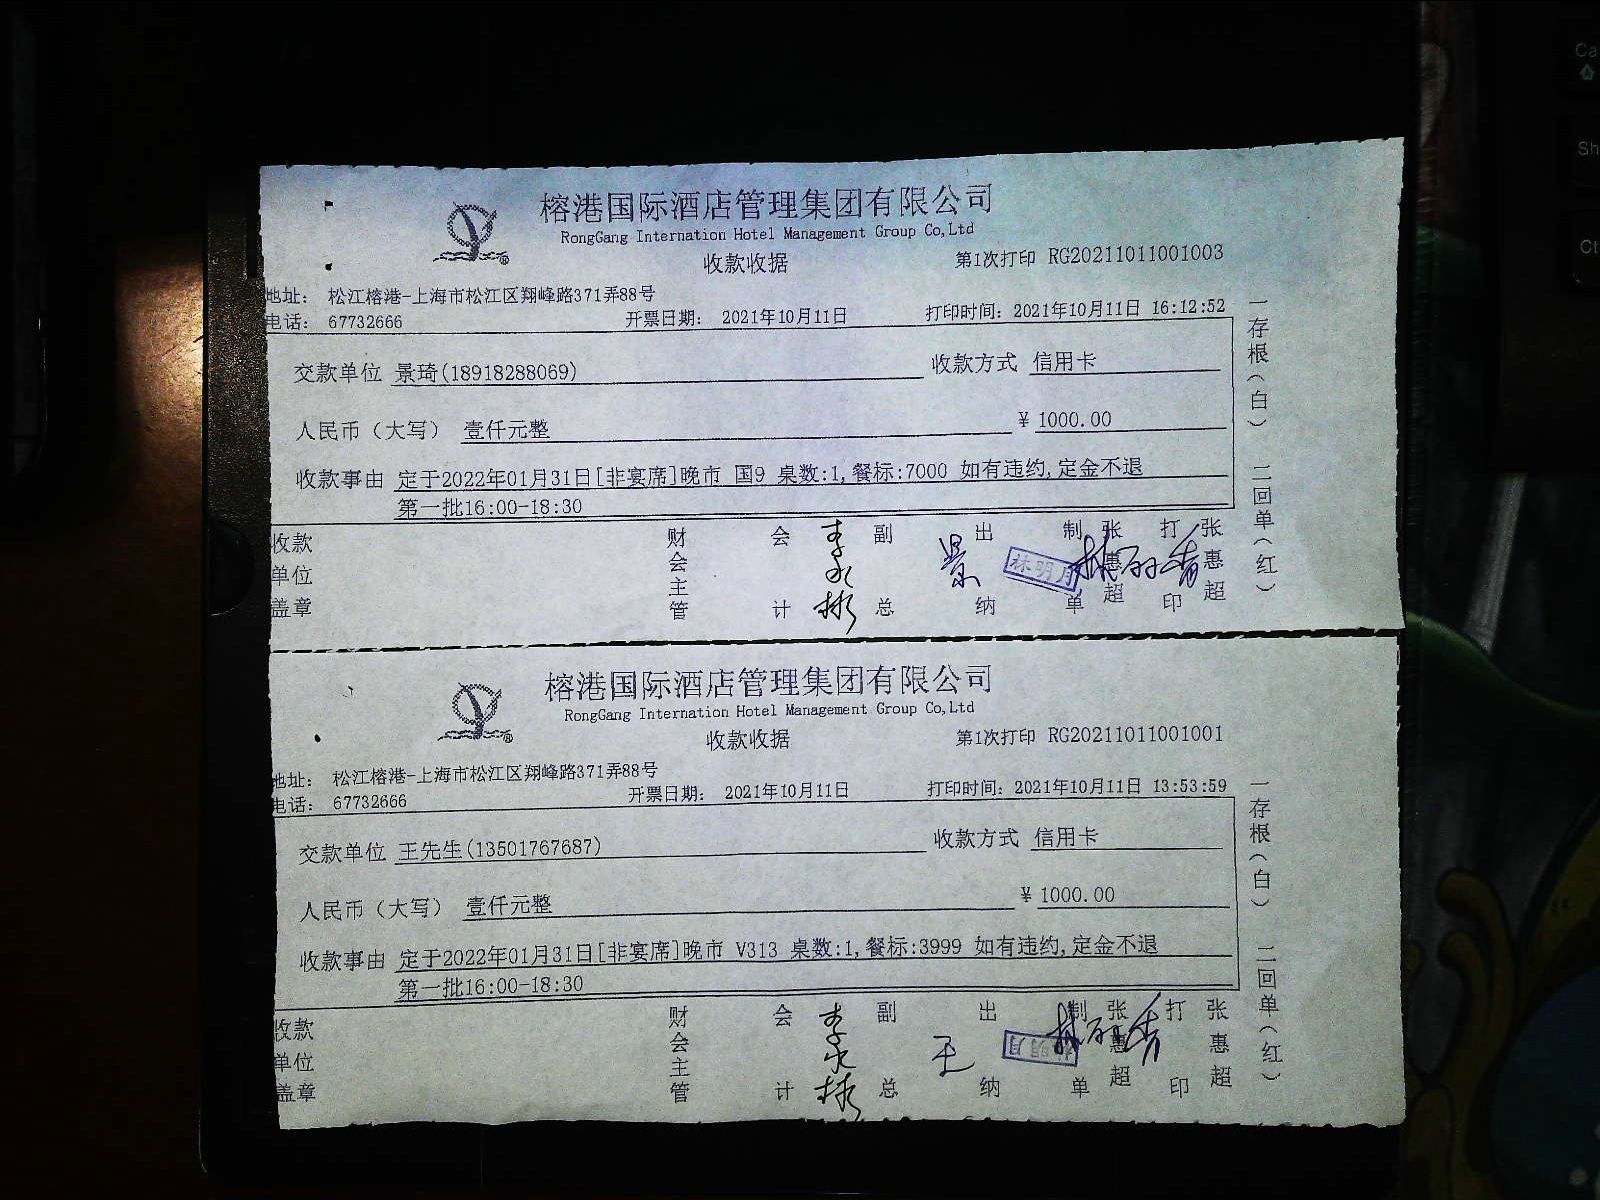 榕港国际酒店管理集团有限公司
RongGang Internation Hotel Management Group Co,Ltd
收款收据
第1次打印 RG20211011001003
地址： 松江榕港-上海市松江区翔峰路371弄88号
电话： 67732666
开票日期： 2021年10月11日
打印时间：2021年10月11日 16:12:52
交款单位 景琦(18918288069)
收款方式 信用卡
人民币（大写） 壹仟元整
¥ 1000.00
收款事由 定于2022年01月31日[非宴席]晚市 国9 桌数:1,餐标:7000 如有违约,定金不退
第一批16:00-18:30
收款单位盖章
财会主管
会计
李永彬
副总
景
出纳
林明月
制单
张惠超
打印
张惠超
一存根（白） 二回单（红）
榕港国际酒店管理集团有限公司
RongGang Internation Hotel Management Group Co,Ltd
收款收据
第1次打印 RG20211011001001
地址： 松江榕港-上海市松江区翔峰路371弄88号
电话： 67732666
开票日期： 2021年10月11日
打印时间：2021年10月11日 13:53:59
交款单位 王先生(13501767687)
收款方式 信用卡
人民币（大写） 壹仟元整
¥ 1000.00
收款事由 定于2022年01月31日[非宴席]晚市 V313 桌数:1,餐标:3999 如有违约,定金不退
第一批16:00-18:30
收款单位盖章
财会主管
会计
李永彬
副总
王
出纳
林明月
制单
张惠超
打印
张惠超
一存根（白） 二回单（红）